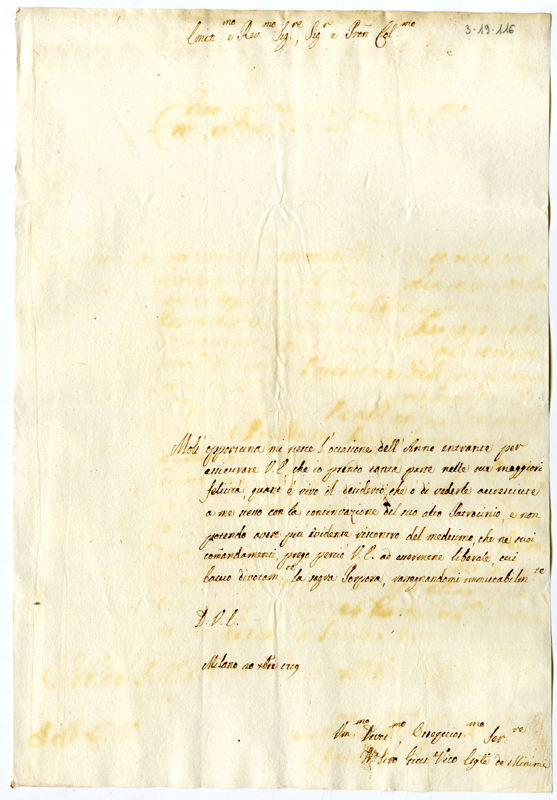 Emin.mo e Rev.mo Sig.re, Sig.r e Pron Col.mo
3-19-116
Molt' opportuna mi riesce l'occasione dell'Anno entrante per
assicurare V.E. che io prendo tanta parte nelle sue maggiori
felicità quant' è vivo il desiderio, che ò di vederle accresciute
a me stesso con la continuazione del suo alto Patrocinio, e non
potendo avere più evidente riscontro del medesimo, che ne suoi
comandamenti, prego perciò V.E. ad essermene liberale, cui
bacio divotam.te la sagra Porpora, rassegnandomi immutabilm.te
D. V. E.
Milano 20 xbre 1719
Um.mo Devot.mo Osseq.mo Ser.re
de Minimi